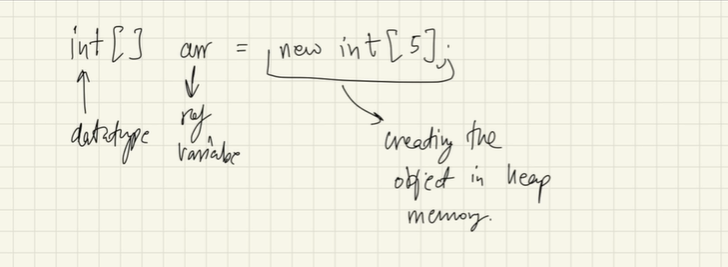 int[] arr = new int[5];
datatype
ref
variable
creating the
object in heap
memory.